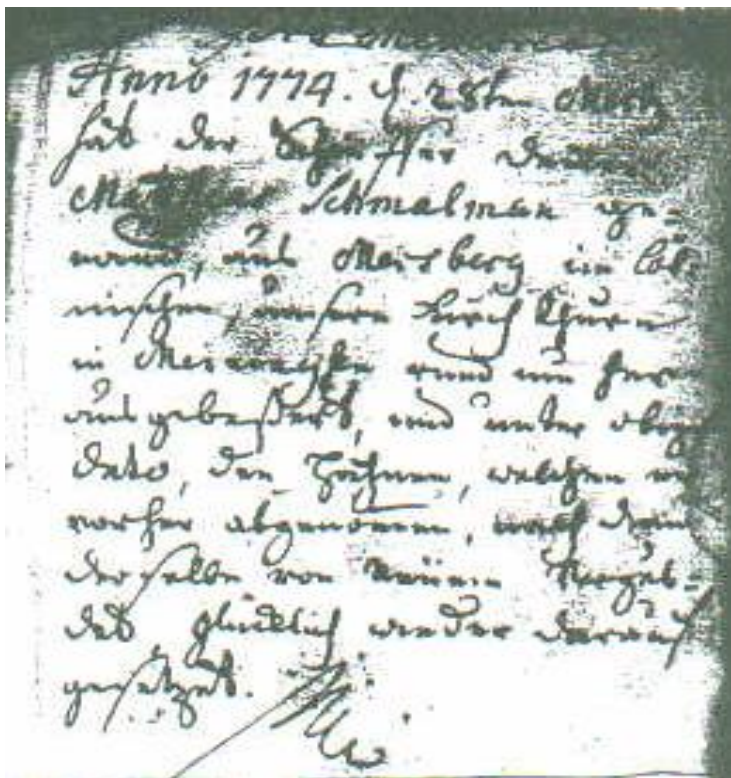 Anno 1774. d. 28ten Mertz
hat der Schieffer decker
Matthias Schmalman ge=
nannt, aus Meisberg im Cöl=
nischen, unsern Kirch Thurn
in rund um her
ausgebeßert, und unter obigen
dato, den Hahnen, welchen er
vorher abgenommen, nach dem
derselbe von neüem vergül=
det, glücklich wieder darauf
gesetzet.